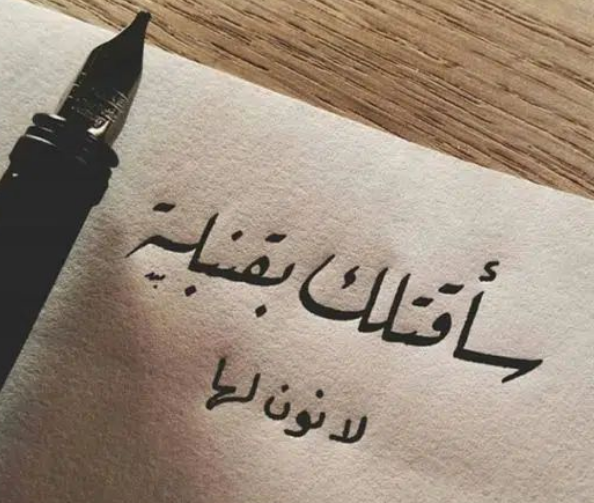 سأقتلك بقنبلة
لا نون لها